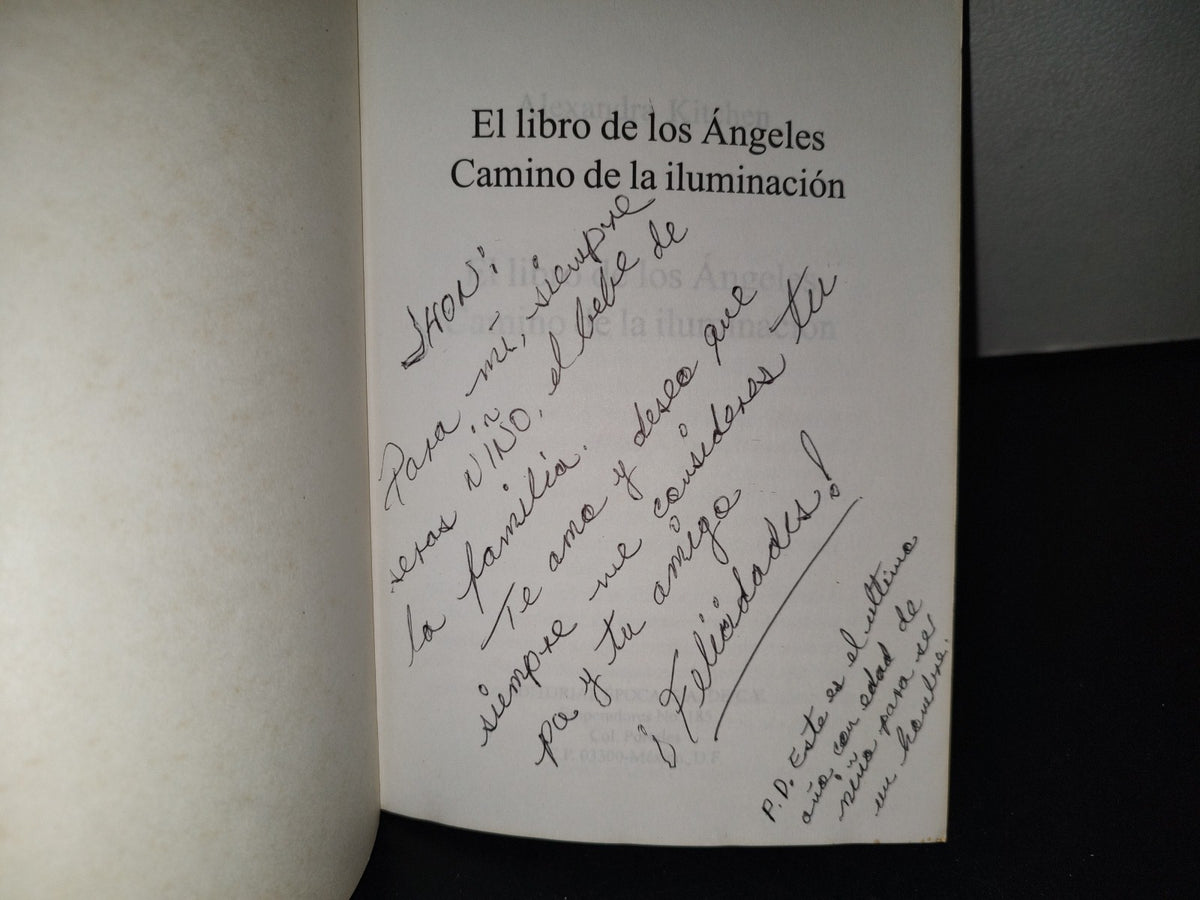 El libro de los Ángeles
Camino de la iluminación
JHON:
Para mi, siempre
seras NIÑO, el bebe de
la familia.
Te amo y deseo que
siempre me consideres tu
pa y tu amigo
¡Felicidades!
P.D. Este es el ultimo
año, con edad de
niño para ser
un hombre.
Alexandra Kitchen
El libro de los Ángeles
Camino de la iluminación
Col.